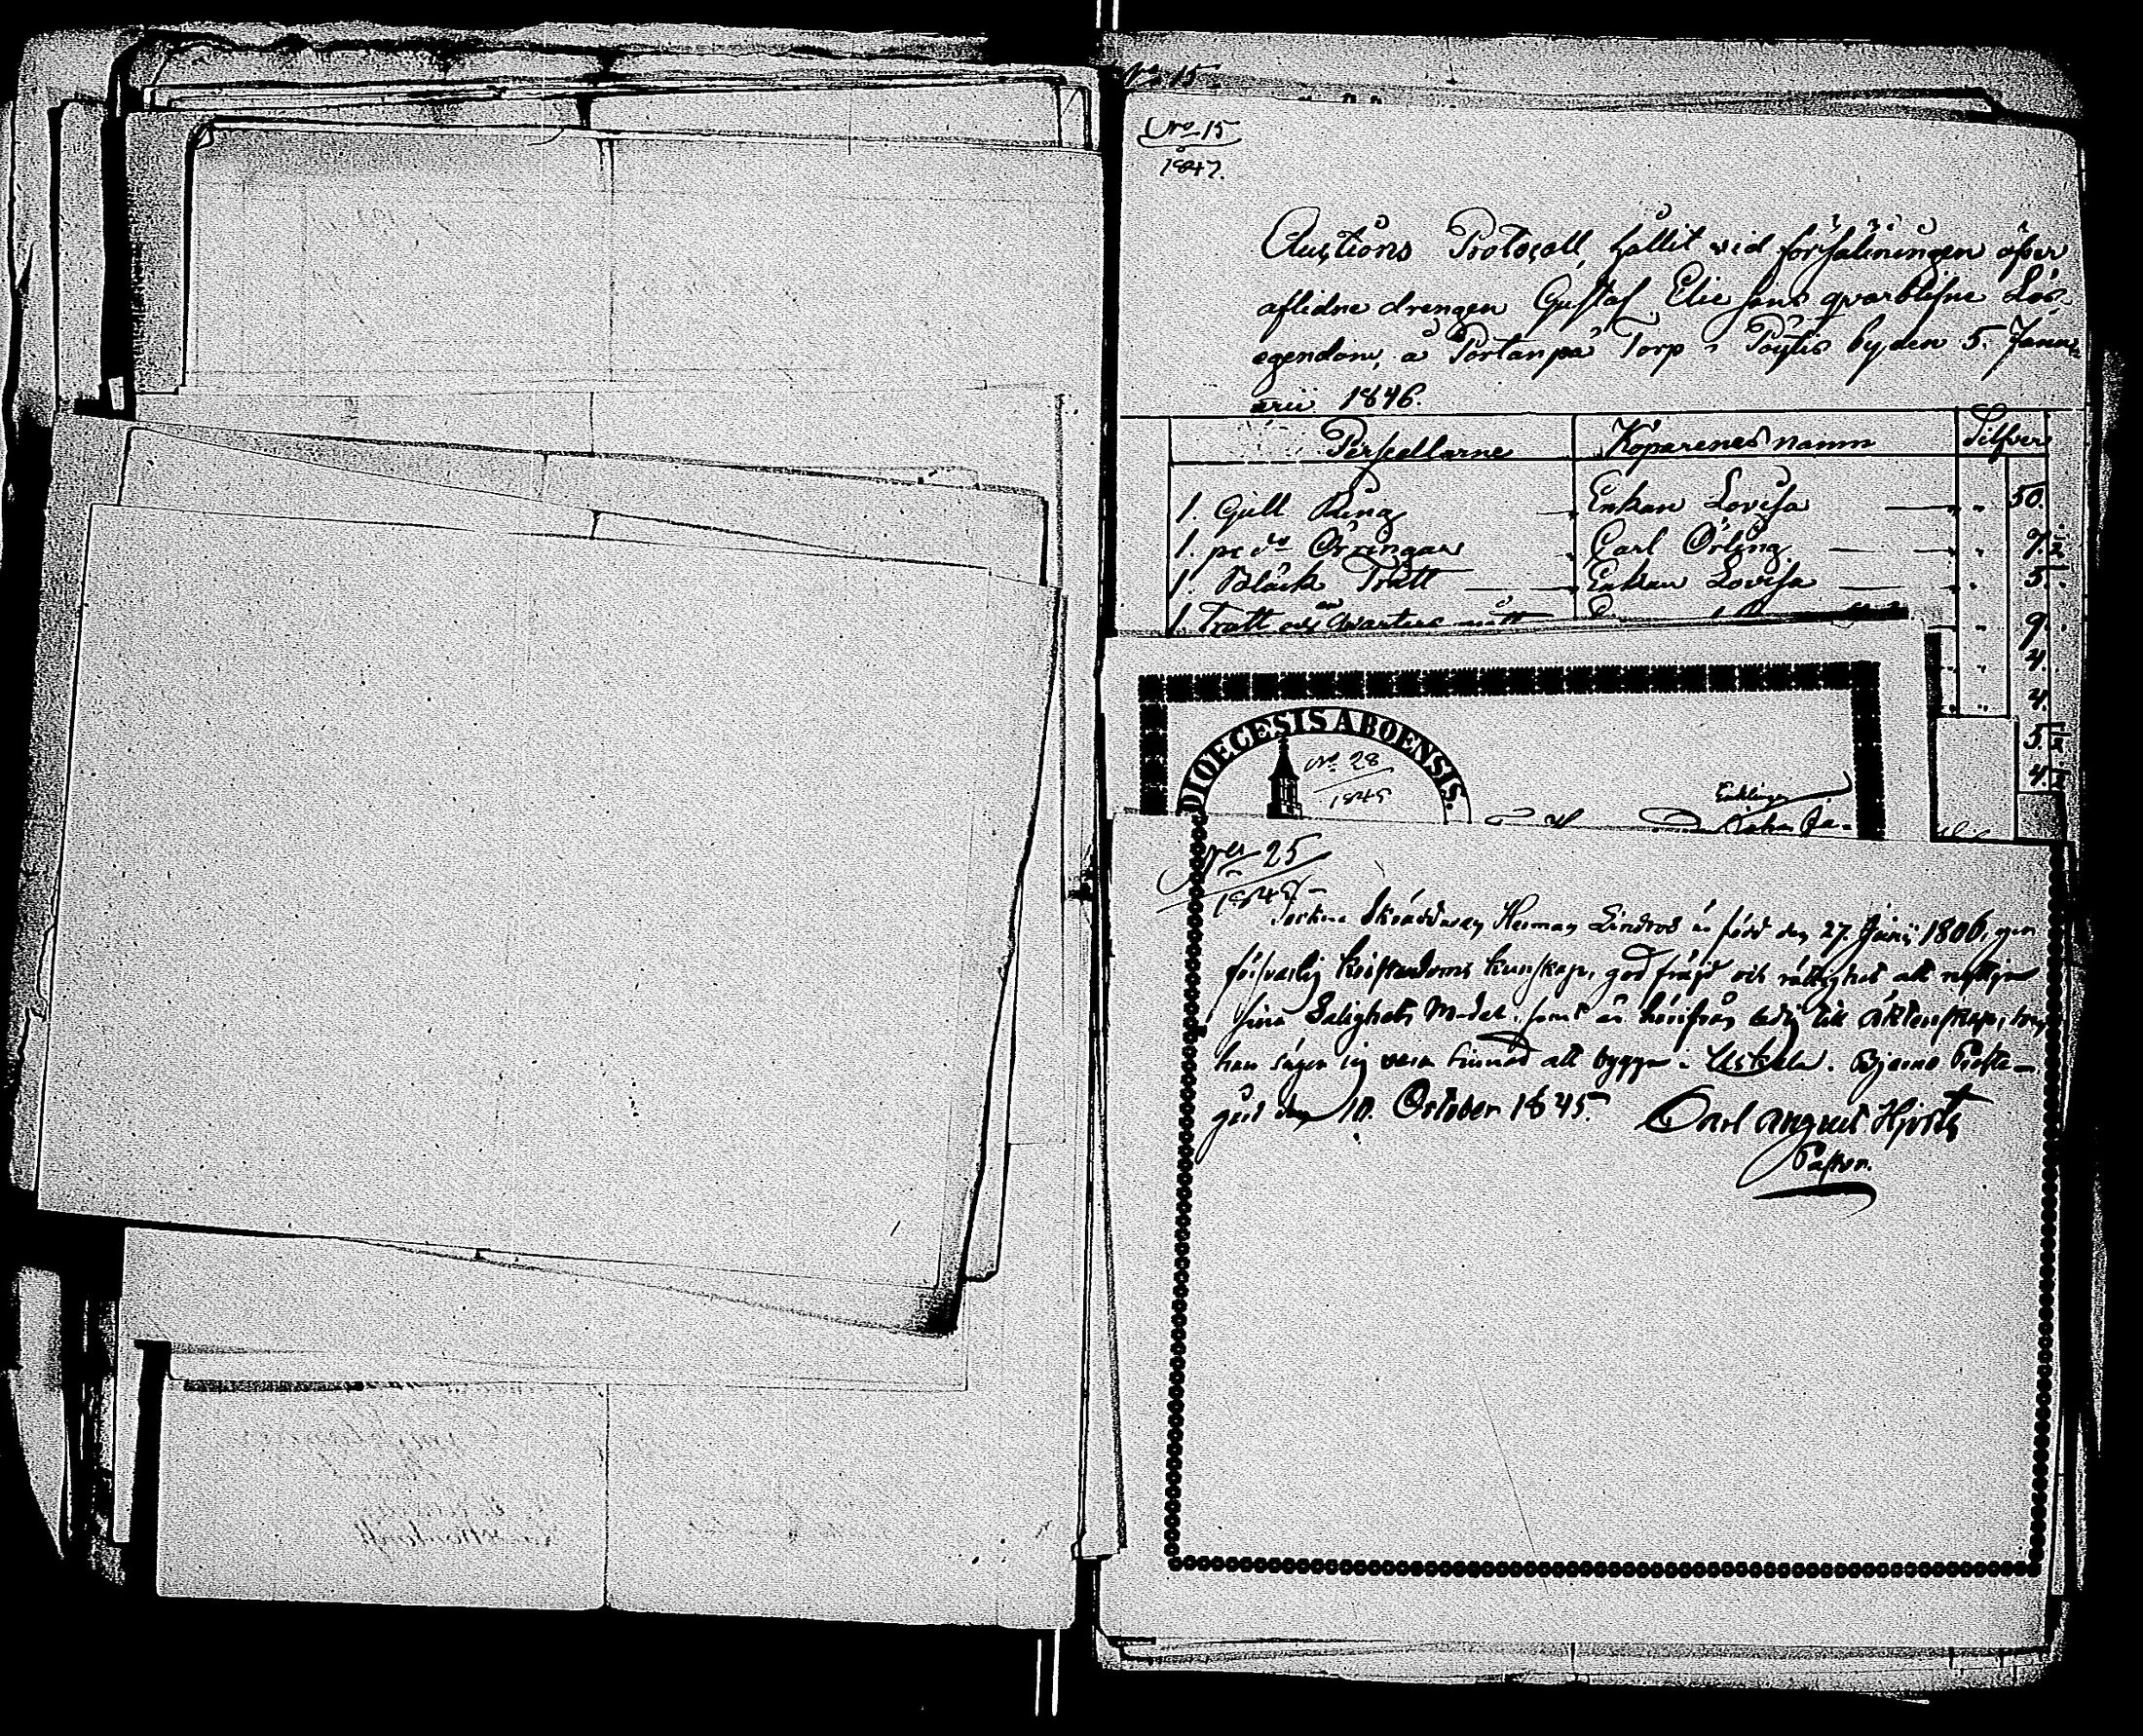 No 15
Nro 15
1847.
Auctions Protocoll, hållit vid försäliningen öfver
aflidne drengen Gustaf Elie sons qvarblefne Lös-
egendom, å Portanpä Torp i Pöytis by den 5. Janu-
arii 1846.
Perscellarne Köparenes namn Silfver
1. Gull Ring Enkan Lovisa " 50.
1. pr do Örringar Carl Örling " 7. 2
1. Bläck Tratt Enkan Lovisa " 5.
1. Tratt och qvarters mått " 9.
" 4.
" 4.
5.
4.
DIOECESIS ABOENSIS.
No 28
1845
Enklingen
Johan
No 25
1845
Sockne Skräddaren Herman Lindros är född den 27. Junii 1806, har
försvarlig Kristendoms kunskap, god frejd och rättighet att nyttja
sina Salighets Medel, samt är härifrån ledig till Äktenskap, som
han säger sig vara sinnad att bygga i Uskela. Bjerno Preste-
gård den 10. October 1845. Carl August Hjorth
Pastor.